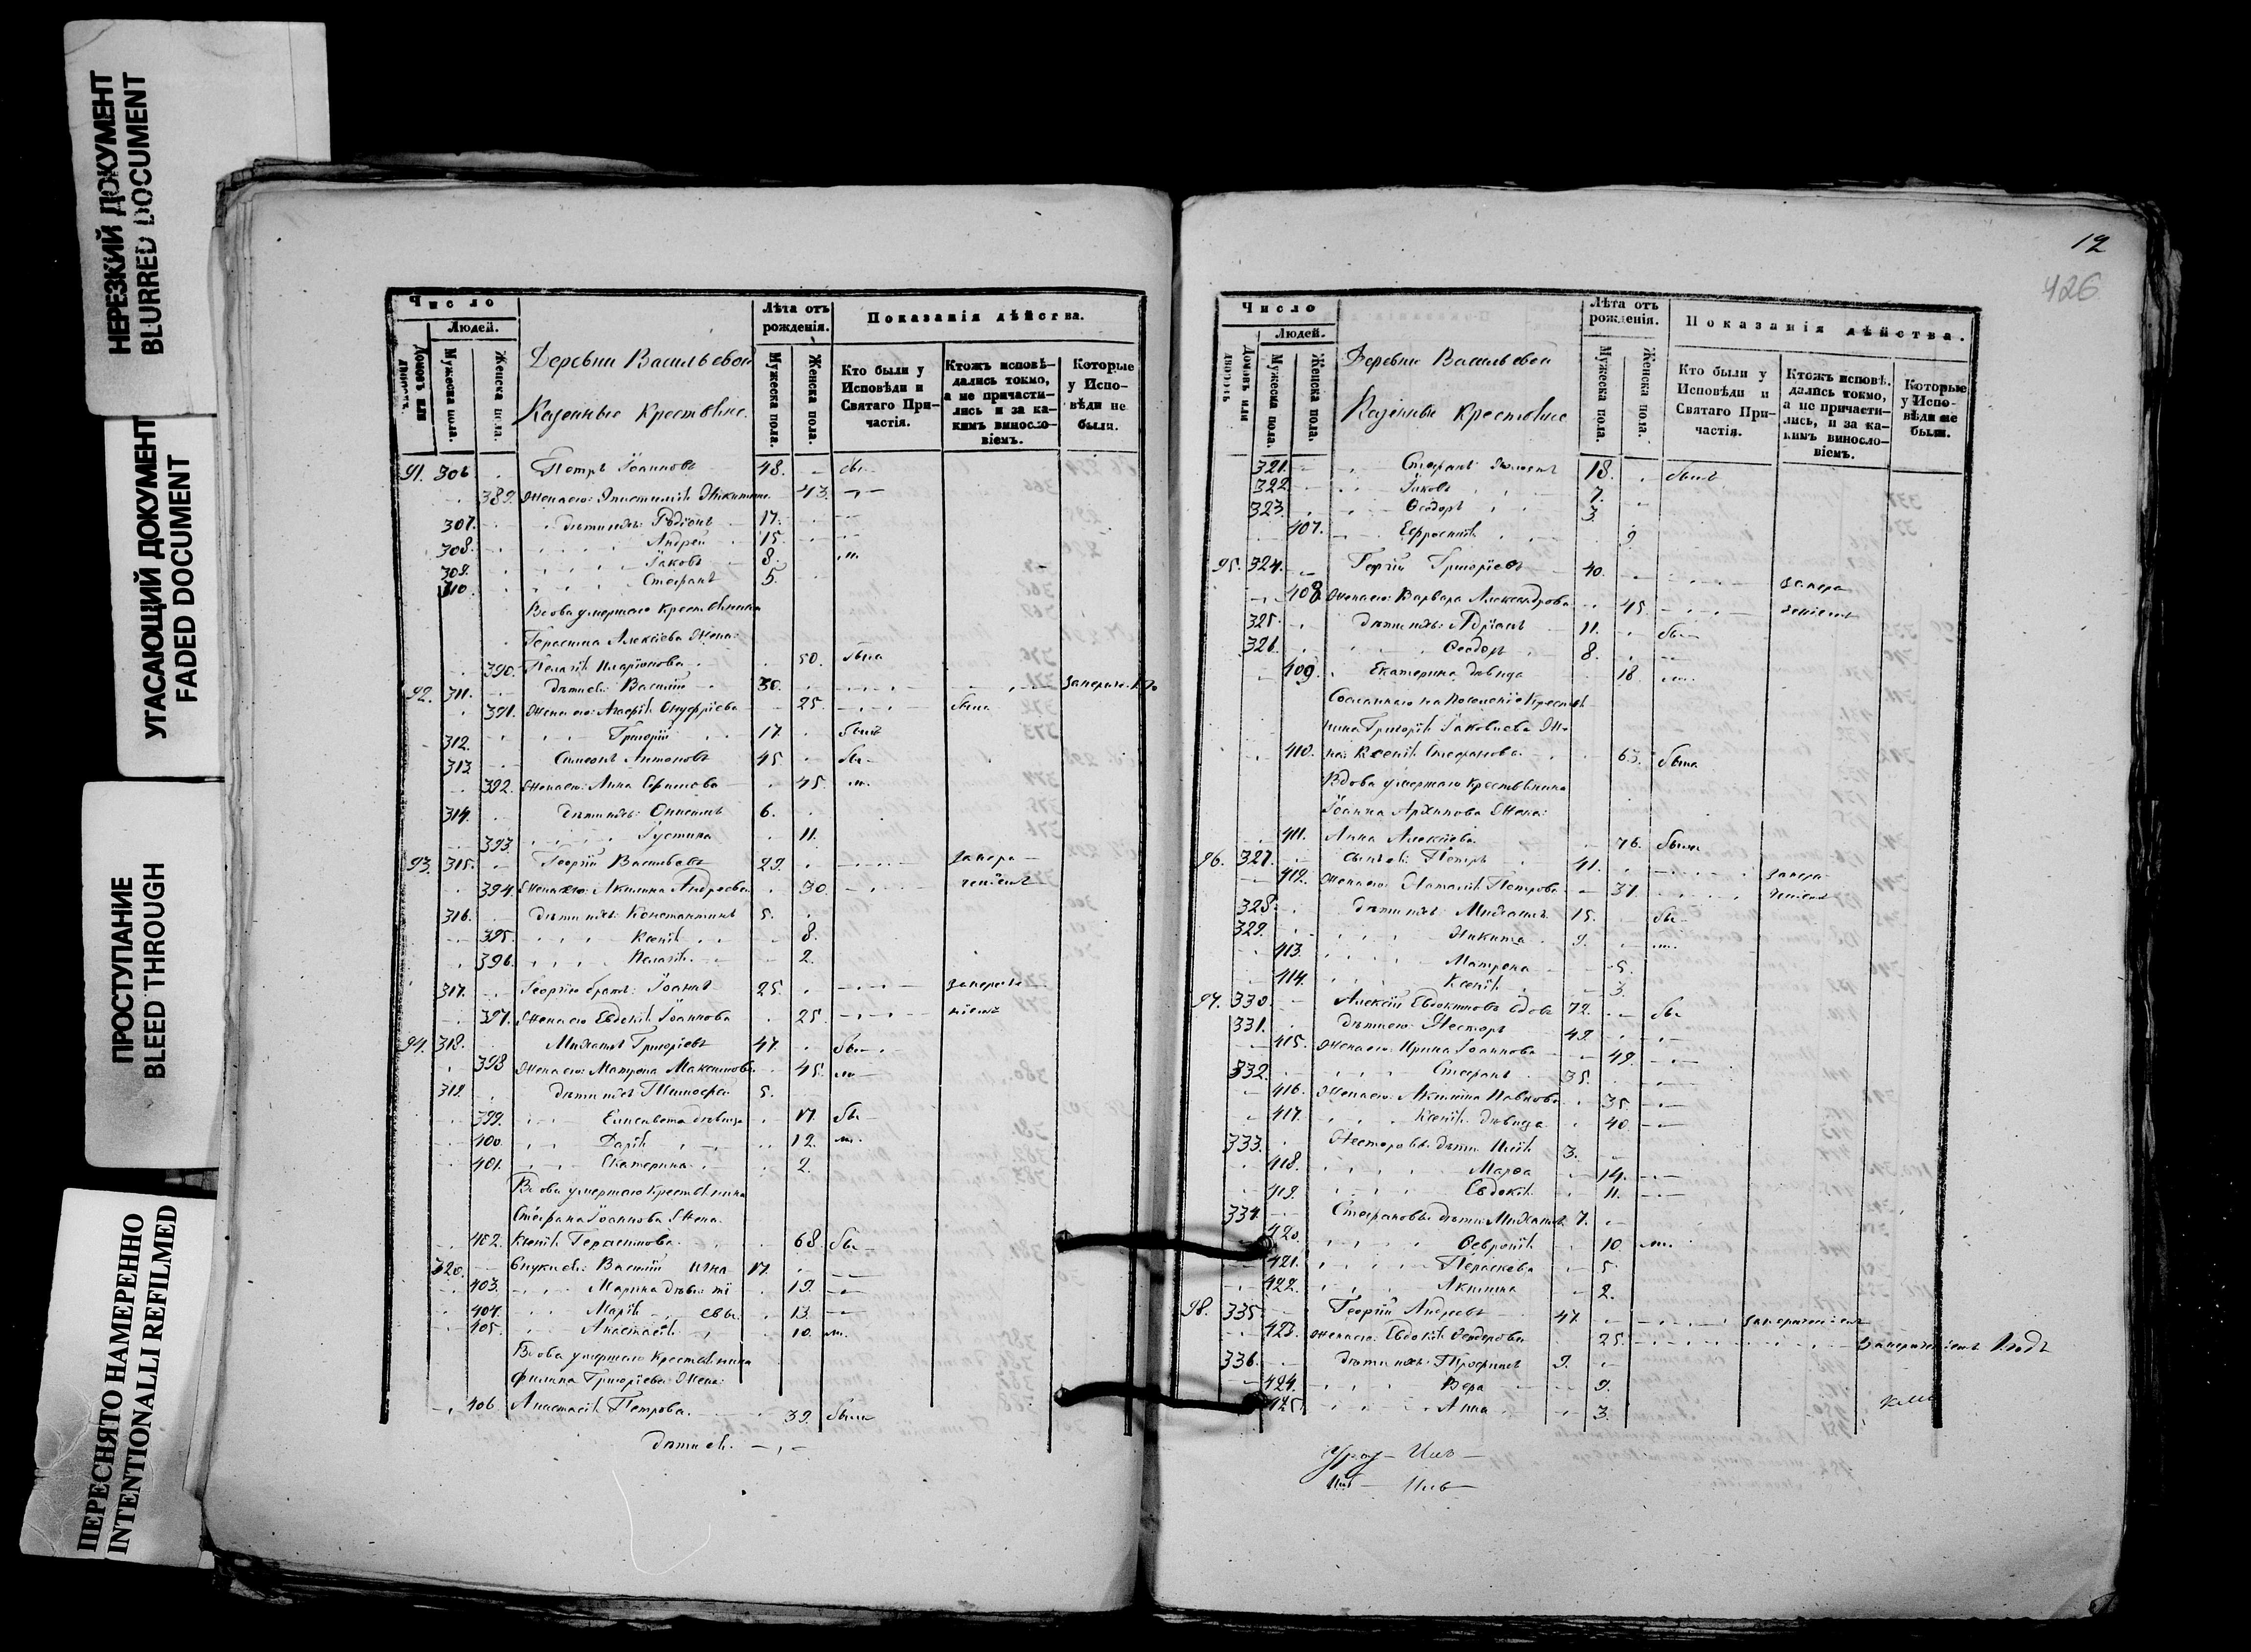 НЕРЕЗКИЙ ДОКУМЕНТ
BLURRED DOCUMENT
УГАСАЮЩИЙ ДОКУМЕНТ
FADED DOCUMENT
ПРОСТУПАНИЕ
BLEED THROUGH
ПЕРЕСНЯТО НАМЕРЕННО
INTENTIONALLI REFILMED
Число
Людей.
Домовъ или дворовъ.
Мужеска пола.
Женска пола.
Деревни Васильевой
Казенные крестьяне.
Лѣта отъ рожденія.
Мужеска пола.
Женска пола.
Показанія дѣйства.
Кто были у Исповѣди и Святаго Причастія.
Ктожъ исповѣдались токмо, а не причастились и за какимъ винословіемъ.
Которые у Исповѣди не были.
91. 306 Петръ Іоанновъ 48. бы
389. Жена его: Епистимія Никитина 43.
307. дѣти ихъ: Родіонъ 17.
308. Андрей 15.
309. Іаковъ 8.
310. Стефанъ 5.
Вдова умершаго крестьянина
Герасима Алексіева жена:
390. Пелагія Иларіонова 50. была
92. 311. дѣти ея: Василій 30.
391. Жена его: Агафія Онуфріева 25. была
312. Григорій 17. былъ
313 Симеонъ Антоновъ 45. бы
392. Жена его: Анна Ефимова 45.
314. дѣти ихъ: Онисимъ 6.
393. Іустина 11.
93. 315. Георгій Васильевъ 29. запера
394. Жена его: Акилина Андреева 30. тѣніемъ
316. дѣти ихъ: Константинъ 5.
395. Ксенія 8.
396. Пелагія 2.
317. Георгію братъ: Іоаннъ 25.
397. Жена его Евдокія Іоаннова 25.
94. 318. Михаилъ Григорьевъ 47. бы
398 Жена его: Матрона Максимова 45.
319. дѣти ихъ Тимофей 5.
399. Елисавета дѣвица 17. бы
400. Дарія 12.
401. Екатерина 2.
Вдова умершаго крестьянина
Стефана Іоаннова жена.
402. Ксенія Герасимова 68. бы
320. Внуки ея: Василій 17.
403. Марина 19.
404. Марія 13.
405. Анастасія 10.
Вдова умершаго крестьянина
Филипа Григорьева жена:
406 Анастасія Петрова. 39. была
дѣти ея.
12
426
Число
Людей.
Домовъ или дворовъ
Мужеска пола.
Женска пола.
Деревни Васильевой
Казенные крестьяне
Лѣта отъ рожденія.
Мужеска пола.
Женска пола.
Показанія дѣйства.
Кто были у Исповѣди и Святаго Причастія.
Ктожъ исповѣдались токмо, а не причастились, и за какимъ винословіемъ.
Которые у Исповѣди не были.
321. Стефанъ 18. былъ
322. Іаковъ 7.
323. Ѳеодоръ 3.
407. Ефросинія 9.
95. 324. Георгій Григорьевъ 40.
408 Жена его: Варвара Александрова 45.
325. дѣти ихъ: Адріанъ 11. бы
326. Ѳеодоръ 8.
409. Екатерина дѣвица 18.
Сосланнаго на поселеніе крестья
нина Григорія Іаковлева же
410. на: Ксенія Стефанова 63. была
Вдова умершаго крестьянина
Іоанна Архипова жена:
411. Анна Алексіева 76. была
96. 327. сынъ ея: Петръ 41. запера
412. Жена его: Наталія Петрова 37.
328. дѣти ихъ: Михаилъ 15. бы
329. Никита 9.
413. Матрона 5.
414. Ксенія 3.
97. 330. Алексій Евдокимовъ вдовъ 72. бы
331. дѣти его: Несторъ 49.
415. Жена его: Ирина Іоаннова 49.
332. Стефанъ 35.
416. Жена его: Акилина Павлова 35.
417. Ксенія дѣвица 40.
333. Несторовы дѣти: Илія 3.
418. Марѳа 14.
419. Евдокія 11.
334. Стефановы дѣти: Михаилъ 7.
420. Ѳевронія 10.
421. Параскева 5.
422. Акилина 2.
98. 335. Георгій Андреевъ 47.
423. Жена его: Евдокія Ѳеодорова 25.
336. дѣти ихъ: Трофимъ 9.
424. Вера 9.
425. Анна 3.